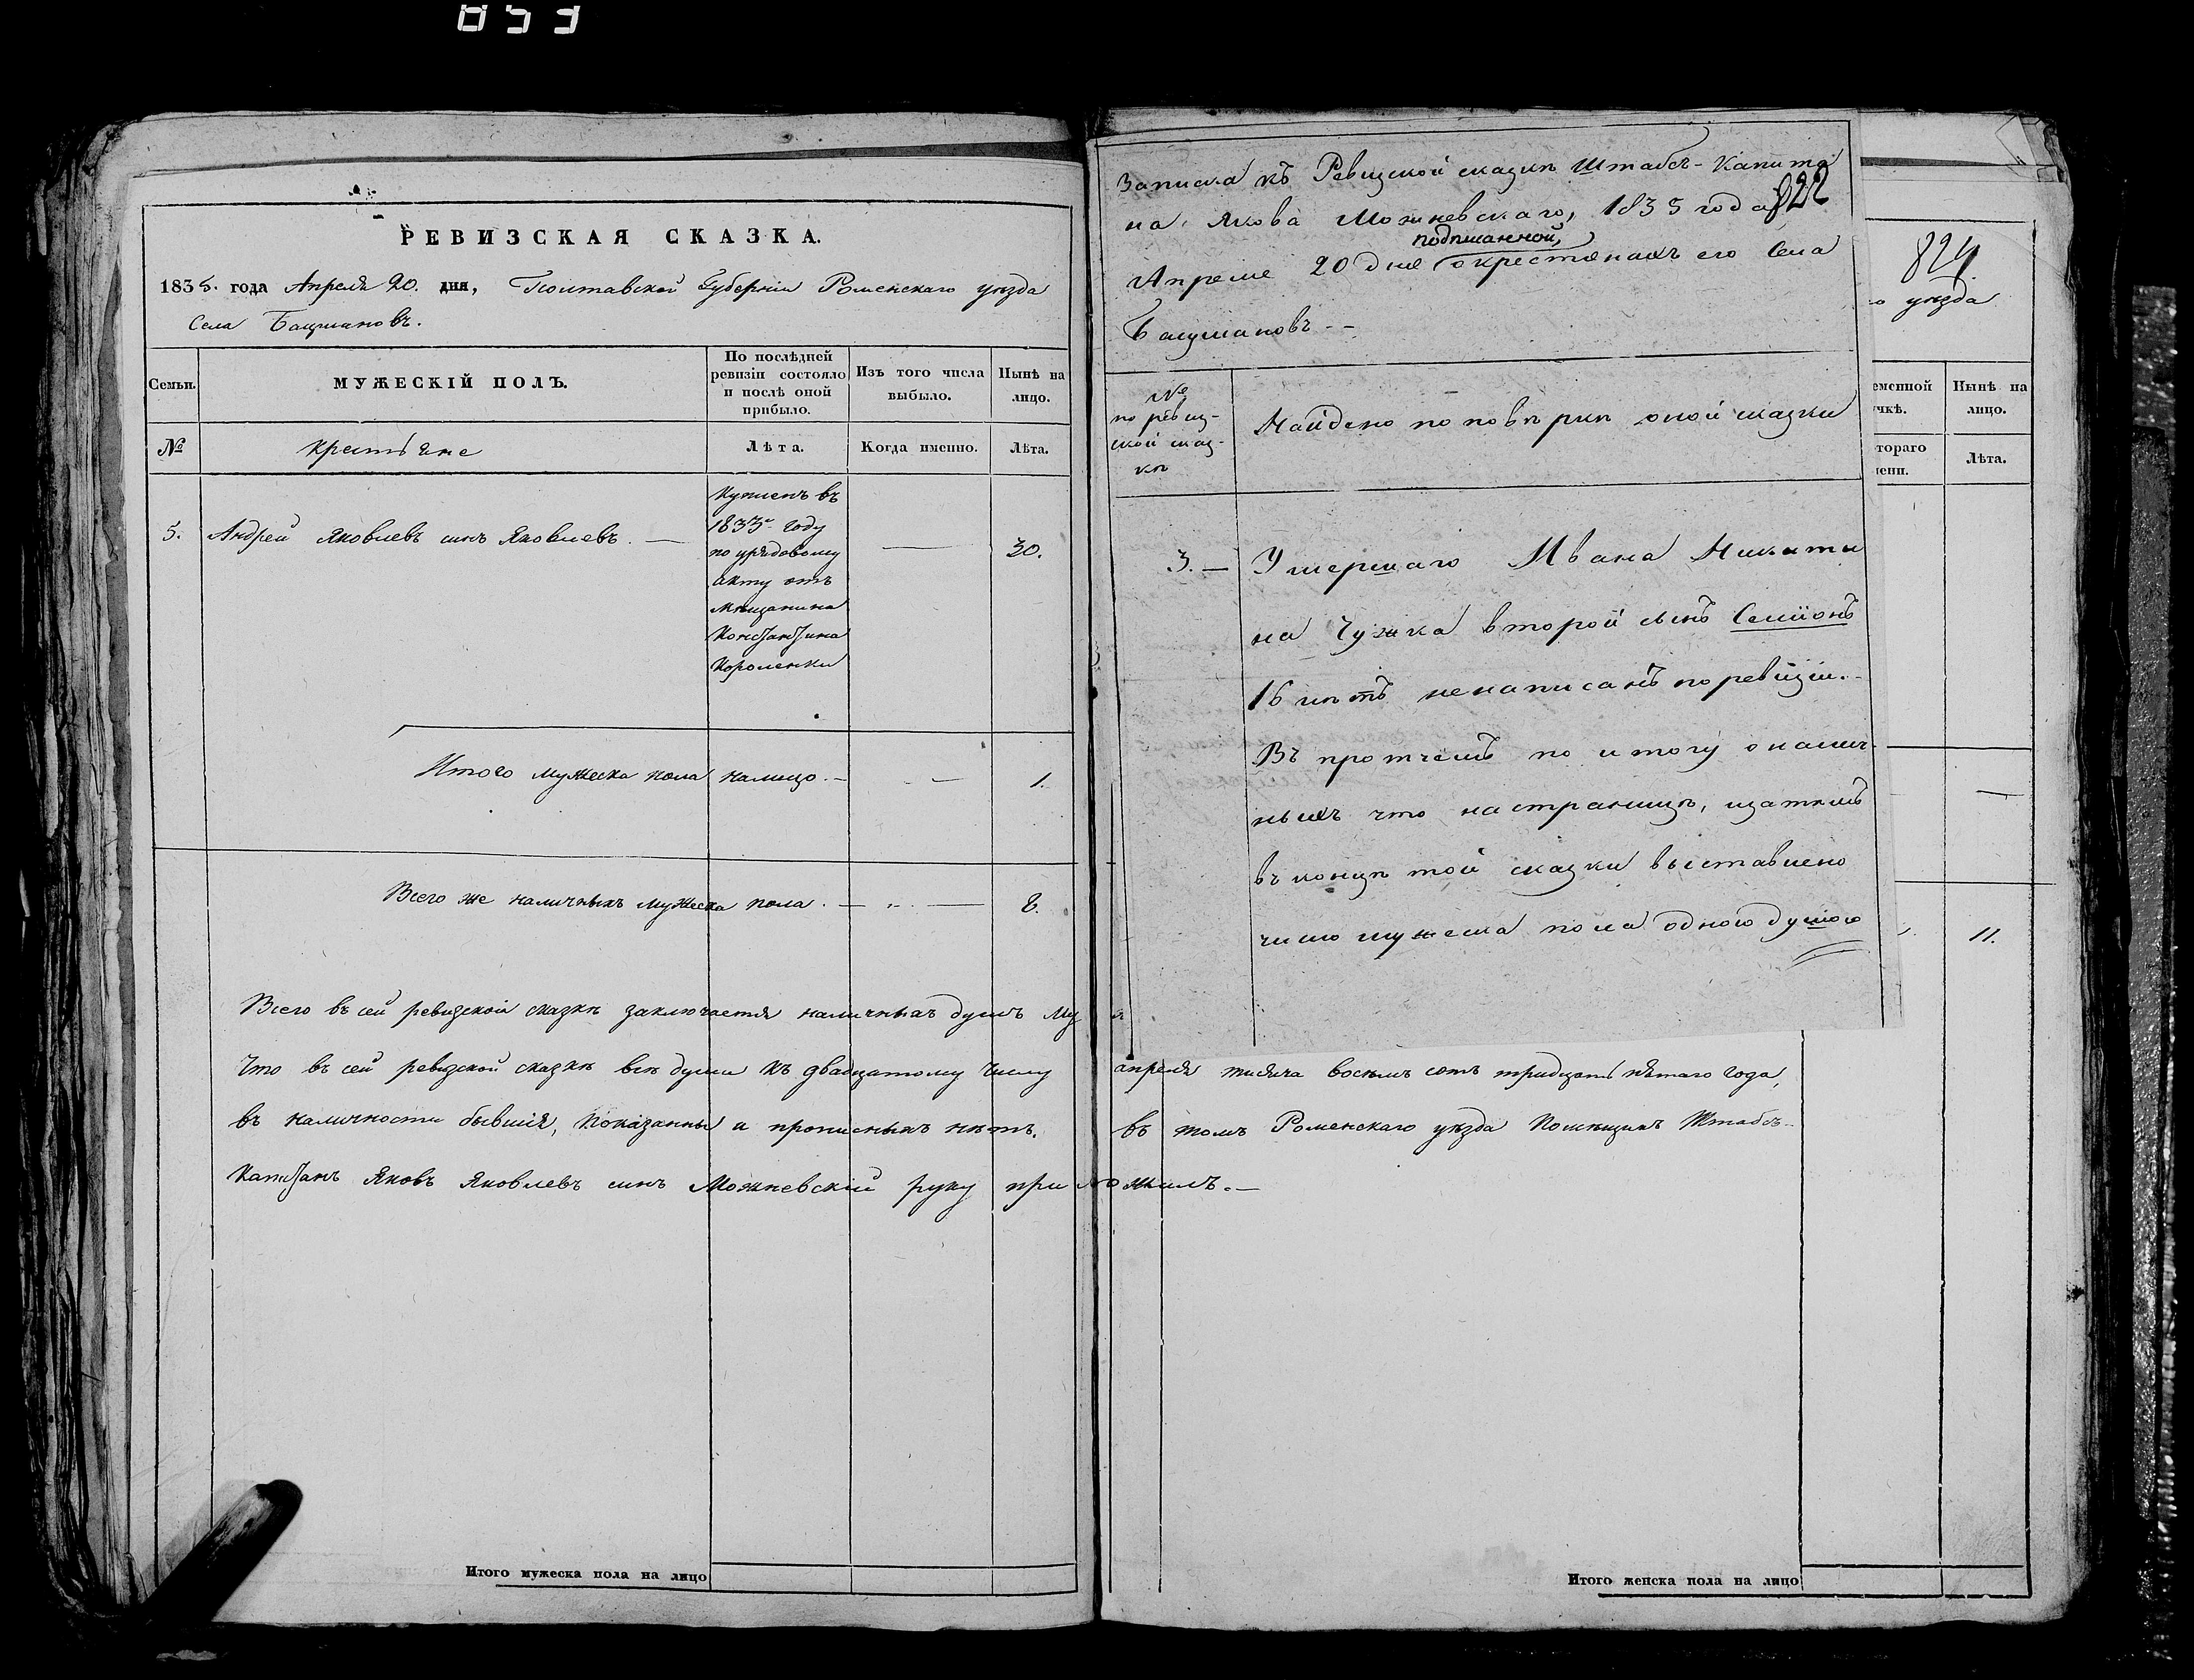 853
РЕВИЗСКАЯ СКАЗКА.
1835. года Апреля 20. дня, Полтавской Губерніи Роменскаго уѣзда
Села Бацмановъ.
Семьи.
МУЖЕСКІЙ ПОЛЪ.
По послѣдней ревизіи состояло и послѣ оной прибыло.
Изъ того числа выбыло.
Нынѣ на лицо.
№
Крестьяне
Лѣта.
Когда именно.
Лѣта.
5.
Андрей Яковлевъ сынъ Яковлевъ. —
Купленъ въ
1833м году
по урядовому
акту отъ
мѣщанина
Константина
Короленки
—
30.
Итого мужеска пола налицо. — — 1.
Всего же наличныхъ мужеска пола. — „ — 8.
Всего въ сей ревизской сказкѣ заключается наличныхъ душъ му
Что въ сей ревизской сказкѣ всѣ души къ двадцатому числу апреля тысяча восемь сотъ тридцать пятаго года,
въ наличности бывшія, показанны и прописныхъ нѣтъ. въ томъ Роменскаго уѣзда Помѣщикъ Штабсъ-
Капитанъ Яковъ Яковлевъ сынъ Можневскій руку приложилъ. —
Итого мужеска пола на лицо
Записка къ Ревизской сказкѣ Штабсъ-Капита
на, Якова Можневскаго, 1835 года
822
подписанной,
Апреля 20 дня о крестянахъ его Села
Бацмановъ - -
№
по ревиз-
ской сказ-
кѣ
Найдено по повѣркѣ оной сказки
3. — Умершаго Ивана Никити
на Чужка второй сынъ Семіонъ
16 лѣтъ ненаписанъ по ревизіи. -
Въ протчемъ по итогу о налич
ныхъ что на страницѣ, и затемъ
въ концѣ той сказки выставлено
число мужеска пола одною душою
824.
о уѣзда
еменной
чкѣ.
Нынѣ на
лицо.
тораго
мени.
Лѣта.
—
11.
Итого женска пола на лицо